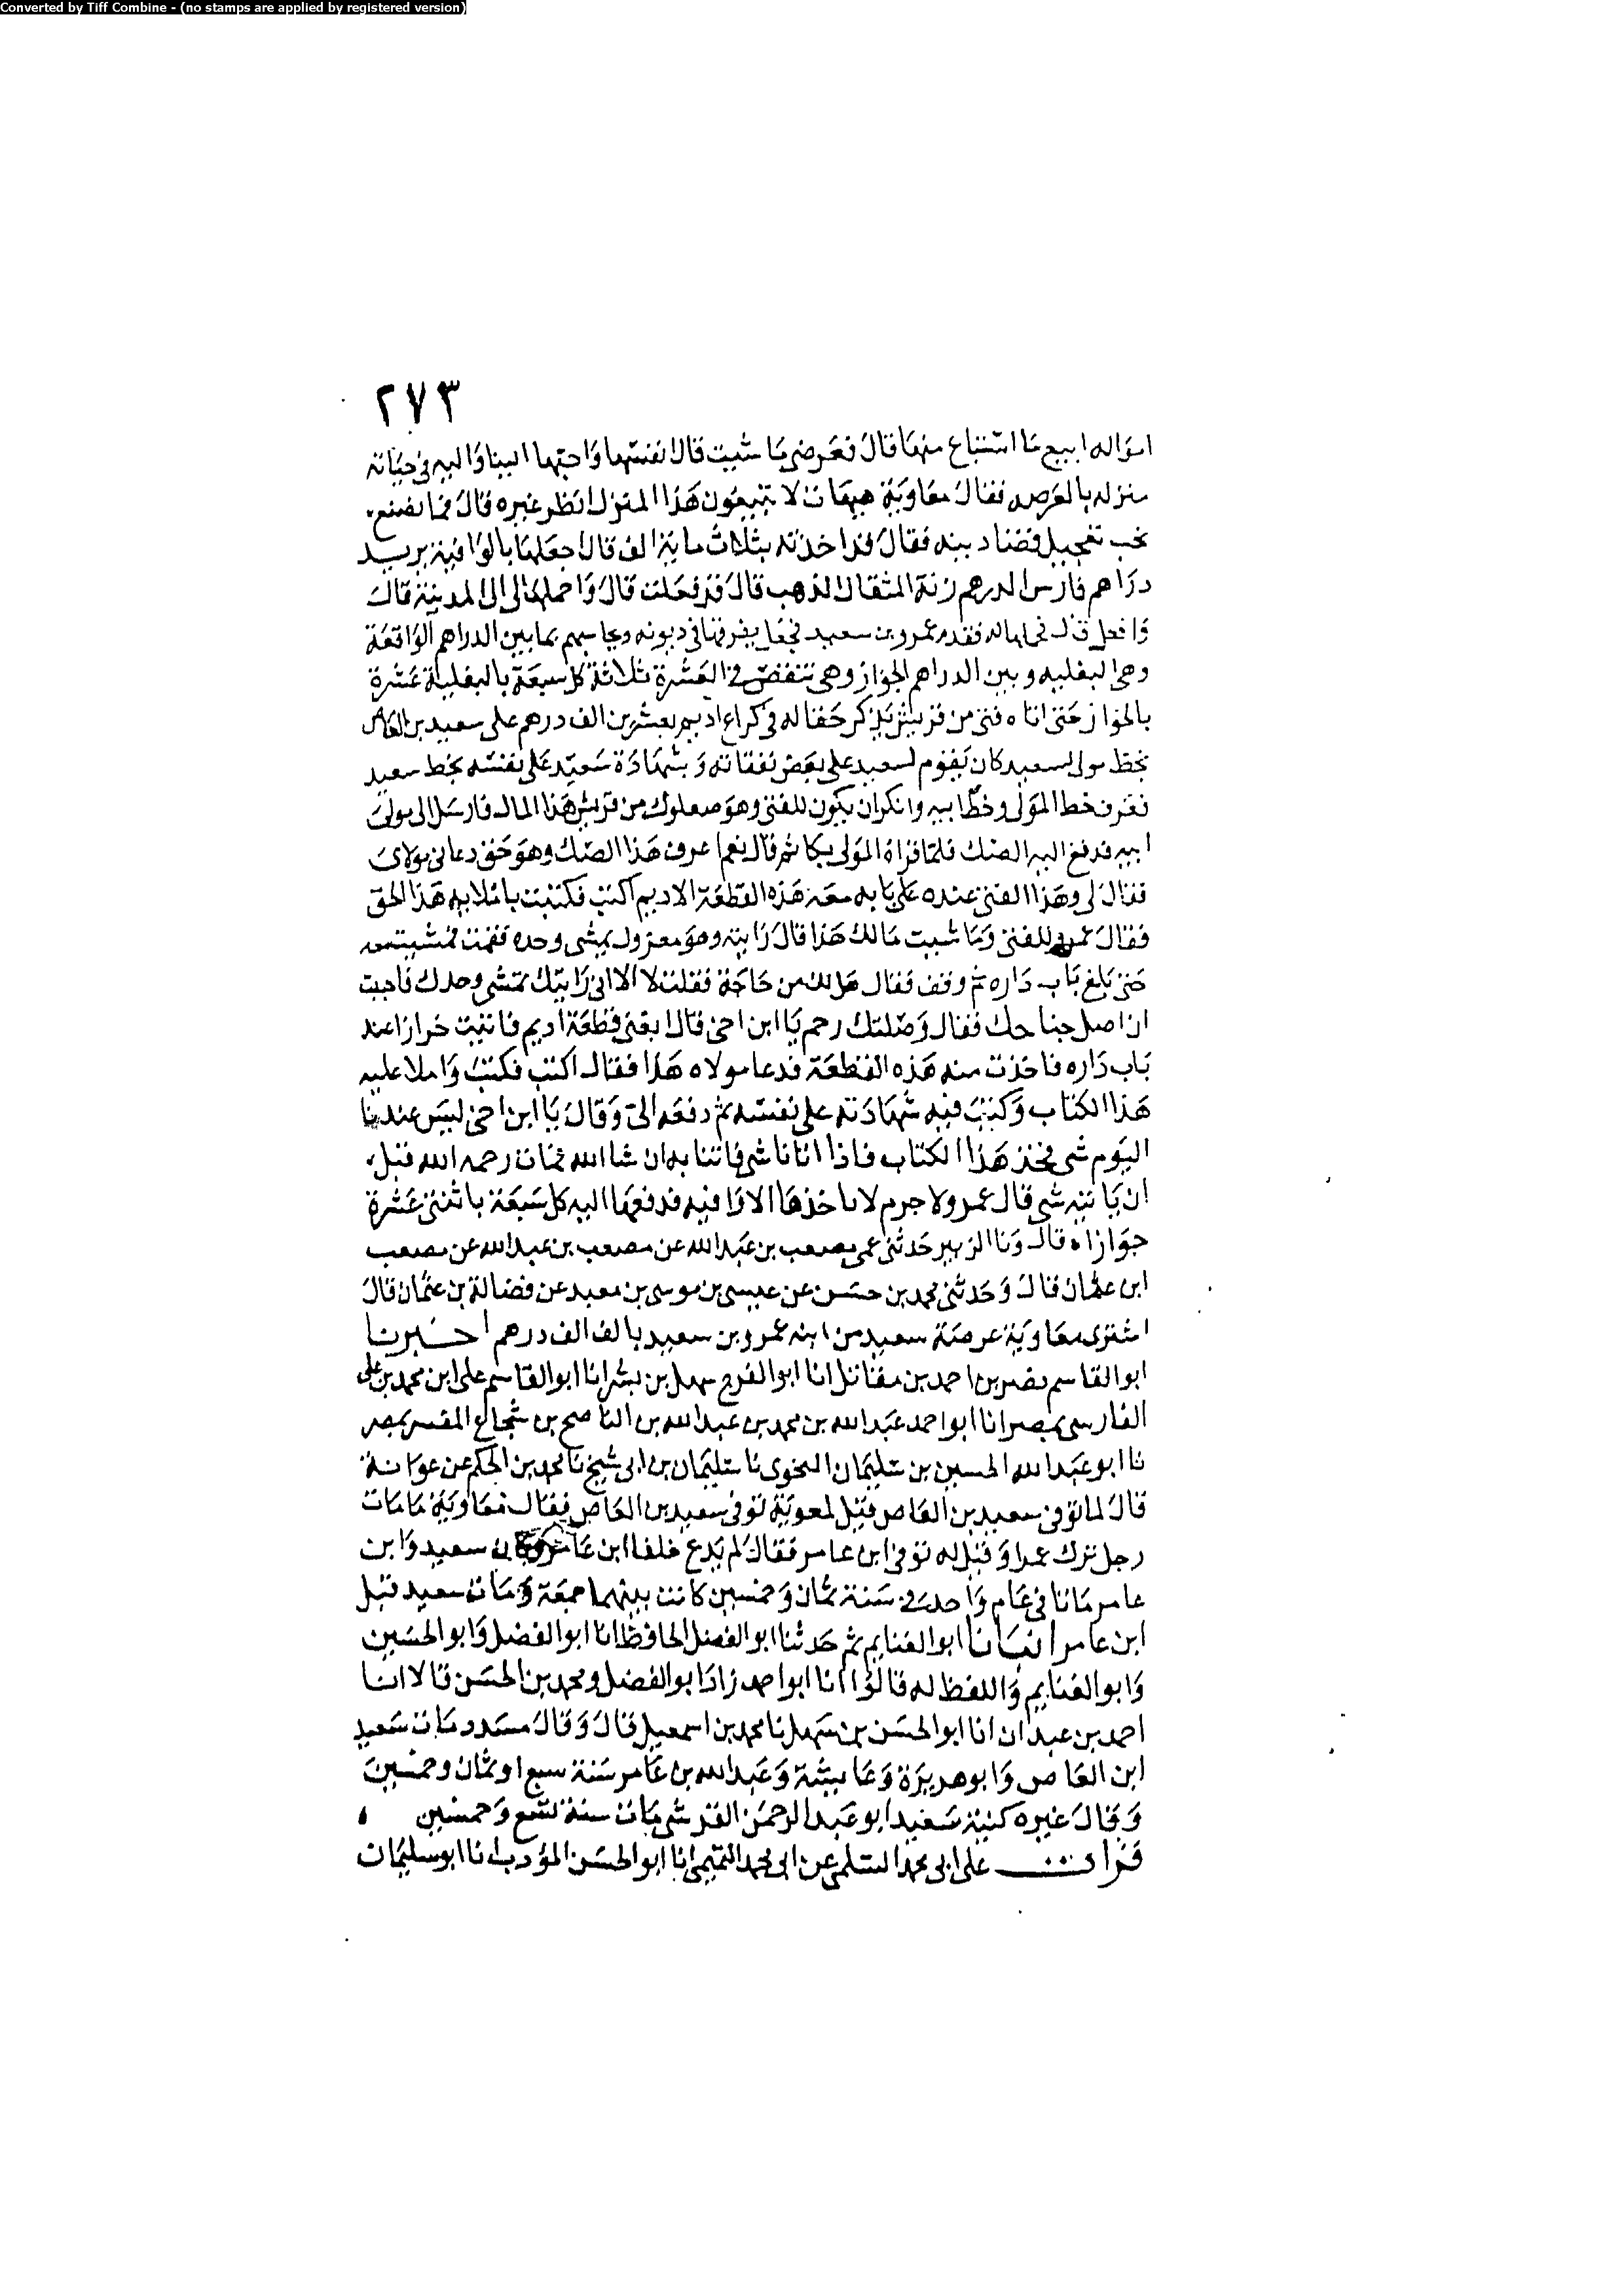 Converted by Tiff Combine - (no stamps are applied by registered version)
٢٧٣
امواله ابيع ما استباع منها قال فعرضي ما شيت قال انفسها واحبها الينا واليه في حياته
منزله بالعرصه فقال معاوية هيهات لا تبيعون هذا المنزل انظر غيره قال فما نصنع
نحب تعجيل قضا دينه فقال قد اخذته بثلاث ماية الف قال اجعلها بالوافية يريد
دراهم فارس الدرهم زنة المثقال الذهب قال قد فعلت قال واحملها لي الى المدينة قال
وافعل قال فحملها له فقدم عمرو بن سعيد فجعل يفرقها في ديونه ويحاسبهم بما بين الدراهم الواقعة
وهي البغليه وبين الدراهم الجواز وهي تنقص في العشرة ثلاثة كل سبعة بالبغلية عشرة
بالجواز حتى اتاه فتى من قريش يذكر حقا له في كراع اديم بعشرين الف درهم على سعيد بن العاص
بخط مولى لسعيد كان يقوم لسعيد على بعض نفقاته وبشهادة سعيد على نفسه بخط سعيد
فعرف خط المولى وخط ابيه وانكر ان يكون للفتى وهو صعلوك من قريش هذا المال فارسل الى مولى
ابيه فدفع اليه الصك فلما قراه المولى بكا ثم قال نعم اعرف هذا الصك وهو حق دعاني مولاى
فقال لي وهذا الفتى عنده على بابه معه هذه القطعة الاديم اكتب فكتبت باملايه هذا الحق
فقال عمرو للفتى وما سبب مالك هذا قال رايته وهو معزول يمشى وحده فقمت فمشيت معه
حتى بلغ باب داره ثم وقف فقال هل لك من حاجة فقلت لا الا اني رايتك تمشى وحدك فاحببت
ان اصل جناحك فقال وصلتك رحم يا ابن اخي قال ابغني قطعة اديم فاتيت خرازا عند
باب داره فاخذت منه هذه القطعة فدعا مولاه هذا فقال اكتب فكتب واملا عليه
هذا الكتاب وكتب فيه شهادته على نفسه ثم دفعه الى وقال يا ابن اخي ليس عندنا
اليوم شى فخذ هذا الكتاب فاذا اتانا شى فاتنا به ان شا الله فمات رحمه الله قبل
ان ياتيه شى قال عمرو لا جرم لا ياخذها الا وافيه فدفعها اليه كل سبعة باثنتى عشرة
جوازا ه قال ونا الزبير حدثنى عمي مصعب بن عبد الله عن مصعب بن عبد الله عن مصعب
ابن عثمان قال وحدثنى محمد بن حسن عن عيسى بن موسى بن معبد عن فضالة بن عثمان قال
اشترى معاوية عرصة سعيد من ابنه عمرو بن سعيد بالف الف درهم اخبرنا
ابو القاسم نصر بن احمد بن مقاتل انا ابو الفرج سهل بن بشر انا ابو القاسم على ابن محمد بن على
الفارسى بمصر انا ابو احمد عبد الله بن محمد بن عبد الله بن الناصح بن شجاع المفسر بمصر
نا ابو عبد الله الحسين بن سليمان النحوى نا سليمان بن ابى شيخ نا محمد بن الحكم عن عوانة
قال لما توفى سعيد بن العاص قيل لمعوية توفى سعيد بن العاص فقال معاوية ما مات
رجل ترك عمرا وقيل له توفى ابن عامر فقال لم يدع خلفا ابن عامر وكان سعيد وابن
عامر ماتا في عام واحد في سنة ثمان وخمسين كانت بينهما جمعة ومات سعيد قبل
ابن عامر انبانا ابو الغنايم ثم حدثنا ابو الفضل الحافظ انا ابو الفضل وابو الحسين
وابو الغنايم واللفظ له قالوا انا ابو احمد زاد ابو الفضل ومحمد بن الحسن قالا انا
احمد بن عبدان انا ابو الحسن بن سهل نا محمد بن اسمعيل قال وقال مسدد مات سعيد
ابن العاص وابو هريرة وعايشة وعبد الله بن عامر سنة سبع او ثمان وخمسين
وقال غيره كنية سعيد ابو عبد الرحمن القرشى مات سنة تسع وخمسين
قرات على ابى محمد السلمى عن ابى محمد التميمى انا ابو الحسن المؤدب انا ابو سليمان